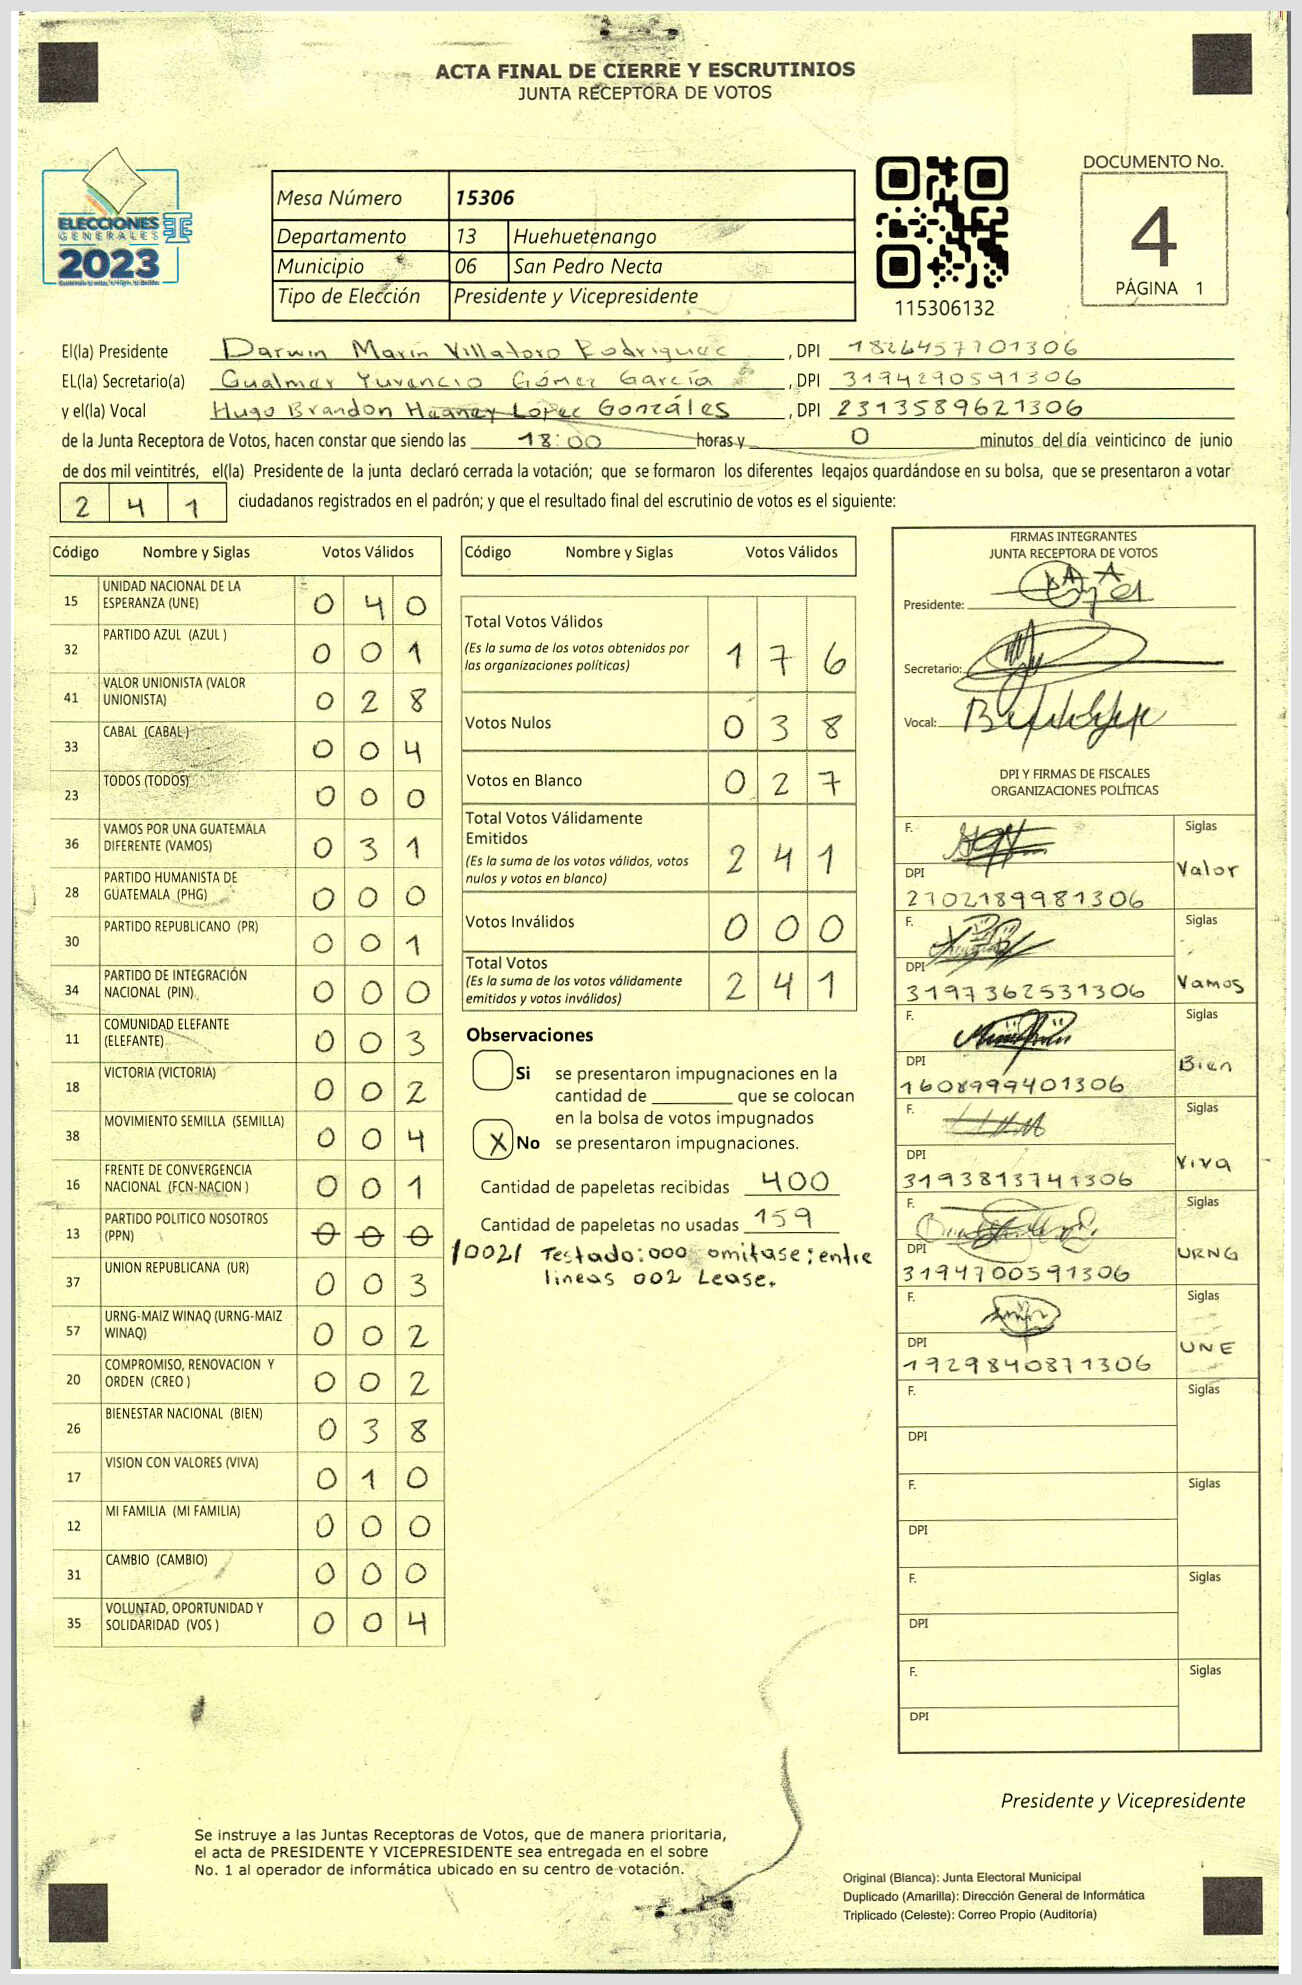 ACTA FINAL DE CIERRE Y ESCRUTINIOS
JUNTA RECEPTORA DE VOTOS
ELECCIONES
GENERALES
2023
Mesa Número 15306
Departamento 13 Huehuetenango
Municipio 06 San Pedro Necta
Tipo de Elección Presidente y Vicepresidente
115306132
DOCUMENTO No.
4
PÁGINA 1
El(la) Presidente Darwin Marin Villatoro Rodriguez, DPI 1826457701306
EL(la) Secretario(a) Gualmar Yuvencio Gómez García, DPI 3194290591306
y el(la) Vocal Hugo Brandon Lopez Gonzáles, DPI 2313589621306
de la Junta Receptora de Votos, hacen constar que siendo las 18:00 horas y 0 minutos del día veinticinco de junio
de dos mil veintitrés, el(la) Presidente de la junta declaró cerrada la votación; que se formaron los diferentes legajos quardándose en su bolsa, que se presentaron a votar
241 ciudadanos registrados en el padrón; y que el resultado final del escrutinio de votos es el siguiente:
Código Nombre y Siglas Votos Válidos
15 UNIDAD NACIONAL DE LA ESPERANZA (UNE) 0 4 0
32 PARTIDO AZUL (AZUL ) 0 0 1
41 VALOR UNIONISTA (VALOR UNIONISTA) 0 2 8
33 CABAL (CABAL) 0 0 4
23 TODOS (TODOS) 0 0 0
36 VAMOS POR UNA GUATEMALA DIFERENTE (VAMOS) 0 3 1
28 PARTIDO HUMANISTA DE GUATEMALA (PHG) 0 0 0
30 PARTIDO REPUBLICANO (PR) 0 0 1
34 PARTIDO DE INTEGRACIÓN NACIONAL (PIN) 0 0 0
11 COMUNIDAD ELEFANTE (ELEFANTE) 0 0 3
18 VICTORIA (VICTORIA) 0 0 2
38 MOVIMIENTO SEMILLA (SEMILLA) 0 0 4
16 FRENTE DE CONVERGENCIA NACIONAL (FCN-NACION ) 0 0 1
13 PARTIDO POLITICO NOSOTROS (PPN) 0 0 0 /002/
37 UNION REPUBLICANA (UR) 0 0 3
57 URNG-MAIZ WINAQ (URNG-MAIZ WINAQ) 0 0 2
20 COMPROMISO, RENOVACION Y ORDEN (CREO ) 0 0 2
26 BIENESTAR NACIONAL (BIEN) 0 3 8
17 VISION CON VALORES (VIVA) 0 1 0
12 MI FAMILIA (MI FAMILIA) 0 0 0
31 CAMBIO (CAMBIO) 0 0 0
35 VOLUNTAD, OPORTUNIDAD Y SOLIDARIDAD (VOS ) 0 0 4
Código Nombre y Siglas Votos Válidos
Total Votos Válidos 1 7 6
(Es la suma de los votos obtenidos por
las organizaciones políticas)
Votos Nulos 0 3 8
Votos en Blanco 0 2 7
Total Votos Válidamente
Emitidos 2 4 1
(Es la suma de los votos válidos, votos
nulos y votos en blanco)
Votos Inválidos 0 0 0
Total Votos 2 4 1
(Es la suma de los votos válidamente
emitidos y votos inválidos)
Observaciones
Si se presentaron impugnaciones en la
cantidad de ________ que se colocan
en la bolsa de votos impugnados
X No se presentaron impugnaciones.
Cantidad de papeletas recibidas 400
Cantidad de papeletas no usadas 159
Testado: 000 omitase; entre
lineas 002 Lease.
FIRMAS INTEGRANTES
JUNTA RECEPTORA DE VOTOS
Presidente:
Secretario:
Vocal:
DPI Y FIRMAS DE FISCALES
ORGANIZACIONES POLÍTICAS
F. Siglas
DPI Valor
2702189981306
F. Siglas
DPI Vamos
3197362531306
F. Siglas
DPI Bien
1608999401306
F. Siglas
DPI Viva
3193813741306
F. Siglas
DPI URNG
3194700591306
F. Siglas
DPI UNE
1929840871306
F. Siglas
DPI
F. Siglas
DPI
F. Siglas
DPI
F. Siglas
DPI
Presidente y Vicepresidente
Se instruye a las Juntas Receptoras de Votos, que de manera prioritaria,
el acta de PRESIDENTE Y VICEPRESIDENTE sea entregada en el sobre
No. 1 al operador de informática ubicado en su centro de votación.
Original (Blanca): Junta Electoral Municipal
Duplicado (Amarilla): Dirección General de Informática
Triplicado (Celeste): Correo Propio (Auditoría)